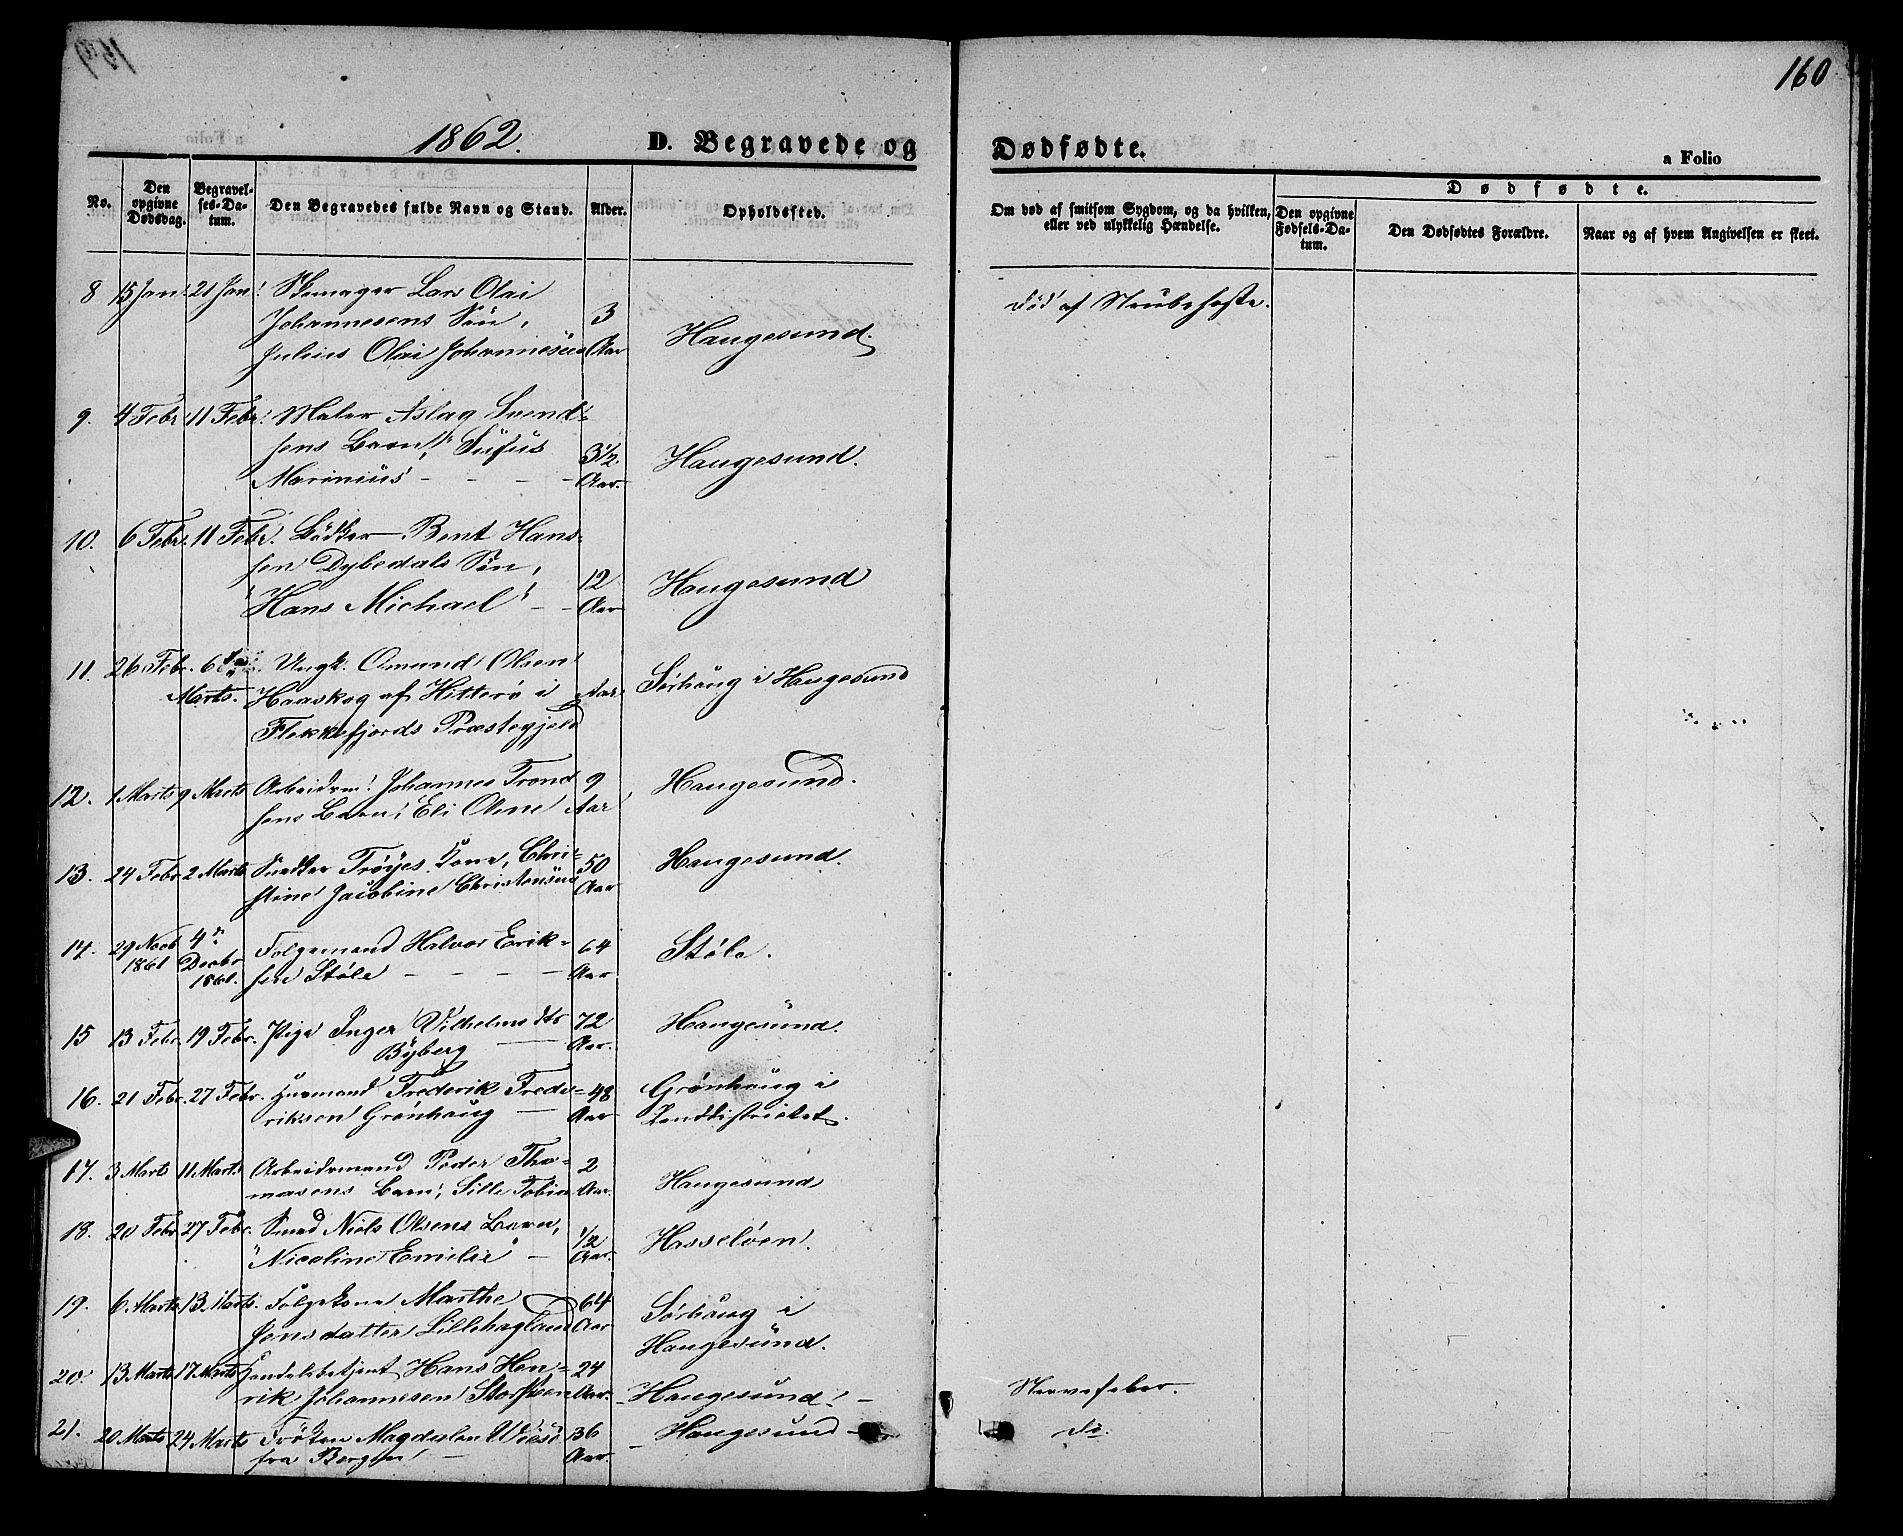 160
1862. D. Begravede og Dødfødte.
a Folio
No. Den opgivne Dødsdag. Begravelses-Datum. Den Begravedes fulde Navn og Stand. Alder. Opholdssted.
Om død af smitsom Sygdom, og da hvilken, eller ved ulykkelig Hændelse. Den opgivne Fødsels-Datum. Den Dødfødtes Forældre. Naar og af hvem Angivelsen er skeet.
Dødfødte.
8 15 Jan: 21 Jan: Skomager Lars Olai
Johannesens Søn, 3
Julius Olai Johannesen Aar Haugesund.
død af Strubehoste.
9. 4 Febr. 11 Febr. Maler Aslag Svend-
sens Barn, 3½ Haugesund.
Marinius - - - - Aar.
10. 6 Febr. 11 Febr. Bödker Bent Han-
sen Dybedals Søn, 12 Haugesund
"Hans Michael" - - Aar
11. 26 Febr. 6 Ungk. Omund Olsen
Marts. af Hitterø i Aar Sørhaug i Haugesund
Flekkefjords Præstegjeld
12. 1 Marts 9 Marts Arbeidsm: Johannes Trond 9 Haugesund.
sens Barn, Eli Oline Aar
13. 24 Febr. 2 Marts Kone, Chri- 50 Haugesund.
stine Jacobine Christensen Aar
14. 29 Novb 4de Folgemand Halvor Erik- 64 Støle.
1861 Decbr sen Støle - - - - Aar
1861.
15 13 Febr. 19 Febr. Pige Inger Vilhelmsdtr 72 Haugesund.
Byberg - Aar.
16. 21 Febr. 27 Febr. Husmand Frederik Frede- 48 Grønhaug i
riksen Grønhaug - Aar Landdistrictet.
17. 3 Marts 11 Marts Arbeidsmand Peder Tho- 2 Haugesund
masens Barn, Sille Tobia Aar.
18. 20 Febr. 27 Febr. Smed Niels Olsens Barn, ½ Hasseløen.
"Nicoline Emilie" - Aar.
19. 6. Marts 13. Marts. Folgekone Marthe 64 Sørhaug i
Jensdatter Lillehagland Aar Haugesund.
20. 13 Marts 17 Marts Handelsbetjent Hans Hen- 24
rik Johannesen Aar. - Haugesund. -
Nervefeber.
21. 20 Marts 24 Marts Frøken Magdalen 36 - Haugesund -
fra Bergen - Aar.
do.